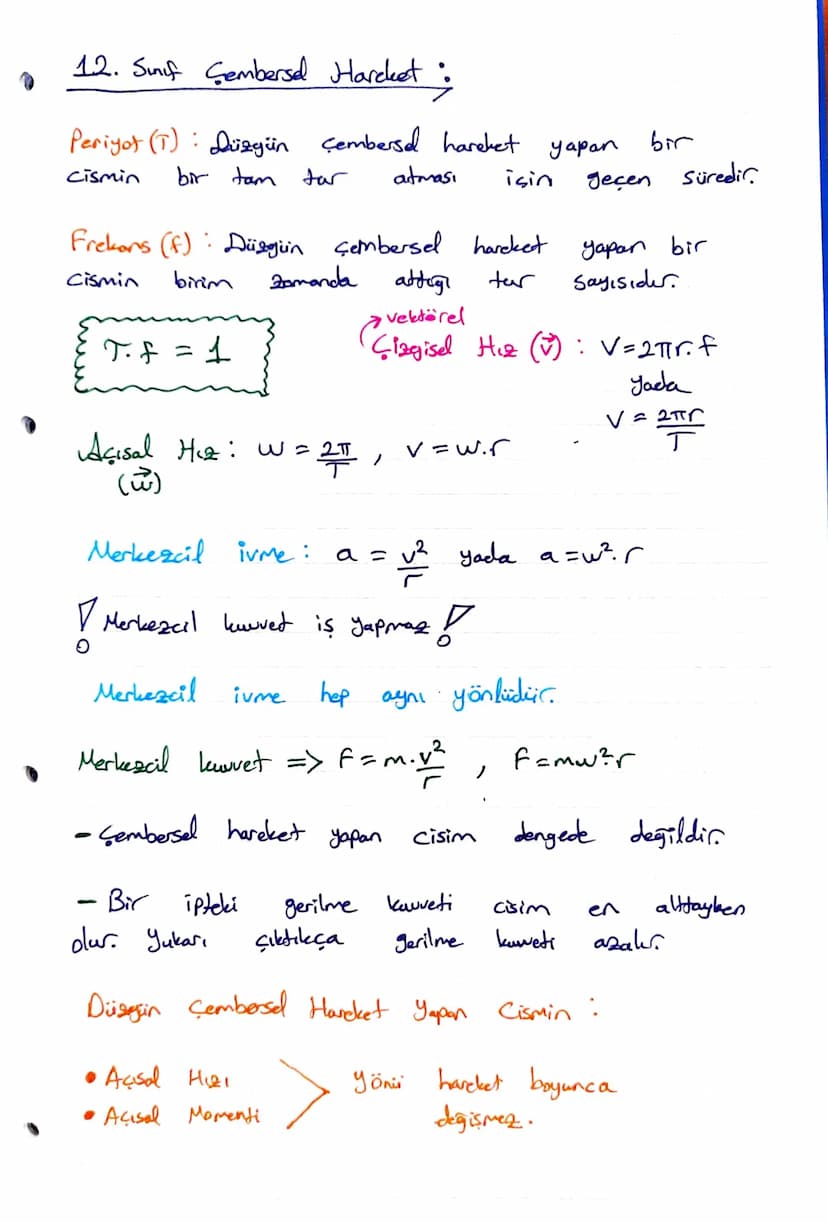 12. Sınıf Çembersel Hareket :
Periyot (T) : Düzgün çembersel hareket yapan bir
cismin bir tam tur atması için geçen süredir.
Frekans (f) : Düzgün çembersel hareket yapan bir
cismin birim zamanda attığı tur sayısıdır.
T.f = 1
→ vektörel
Çizgisel Hız (v⃗) : V=2πr.f
yada
V = 2πr/T
Açısal Hız : w = 2π/T , v = w.r
(w⃗)
Merkezcil ivme : a = v²/r yada a=w².r
! Merkezcil kuvvet iş yapmaz !
Merkezcil ivme hep aynı yönlüdür.
Merkezcil kuvvet => F=m.v²/r , F=mw²r
- Çembersel hareket yapan cisim dengede değildir.
- Bir ipteki gerilme kuvveti cisim en alttayken
olur. Yukarı çıktıkça gerilme kuvveti azalır.
Düzgün Çembersel Hareket Yapan Cismin :
• Açısal Hızı
• Açısal Momenti
> Yönü hareket boyunca
değişmez.